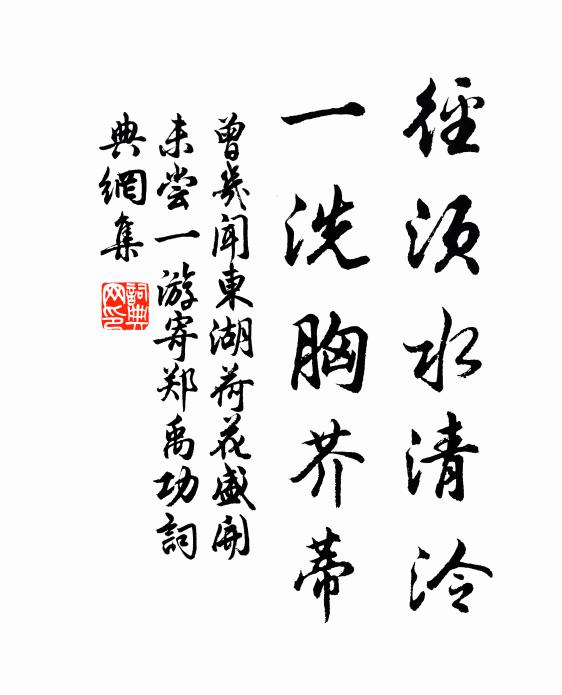 徑須水清泠
一洗胸芥蒂
曾幾聞東湖荷花盛開
未尝一游寄郑禹功詞
典網集
詞典
网印